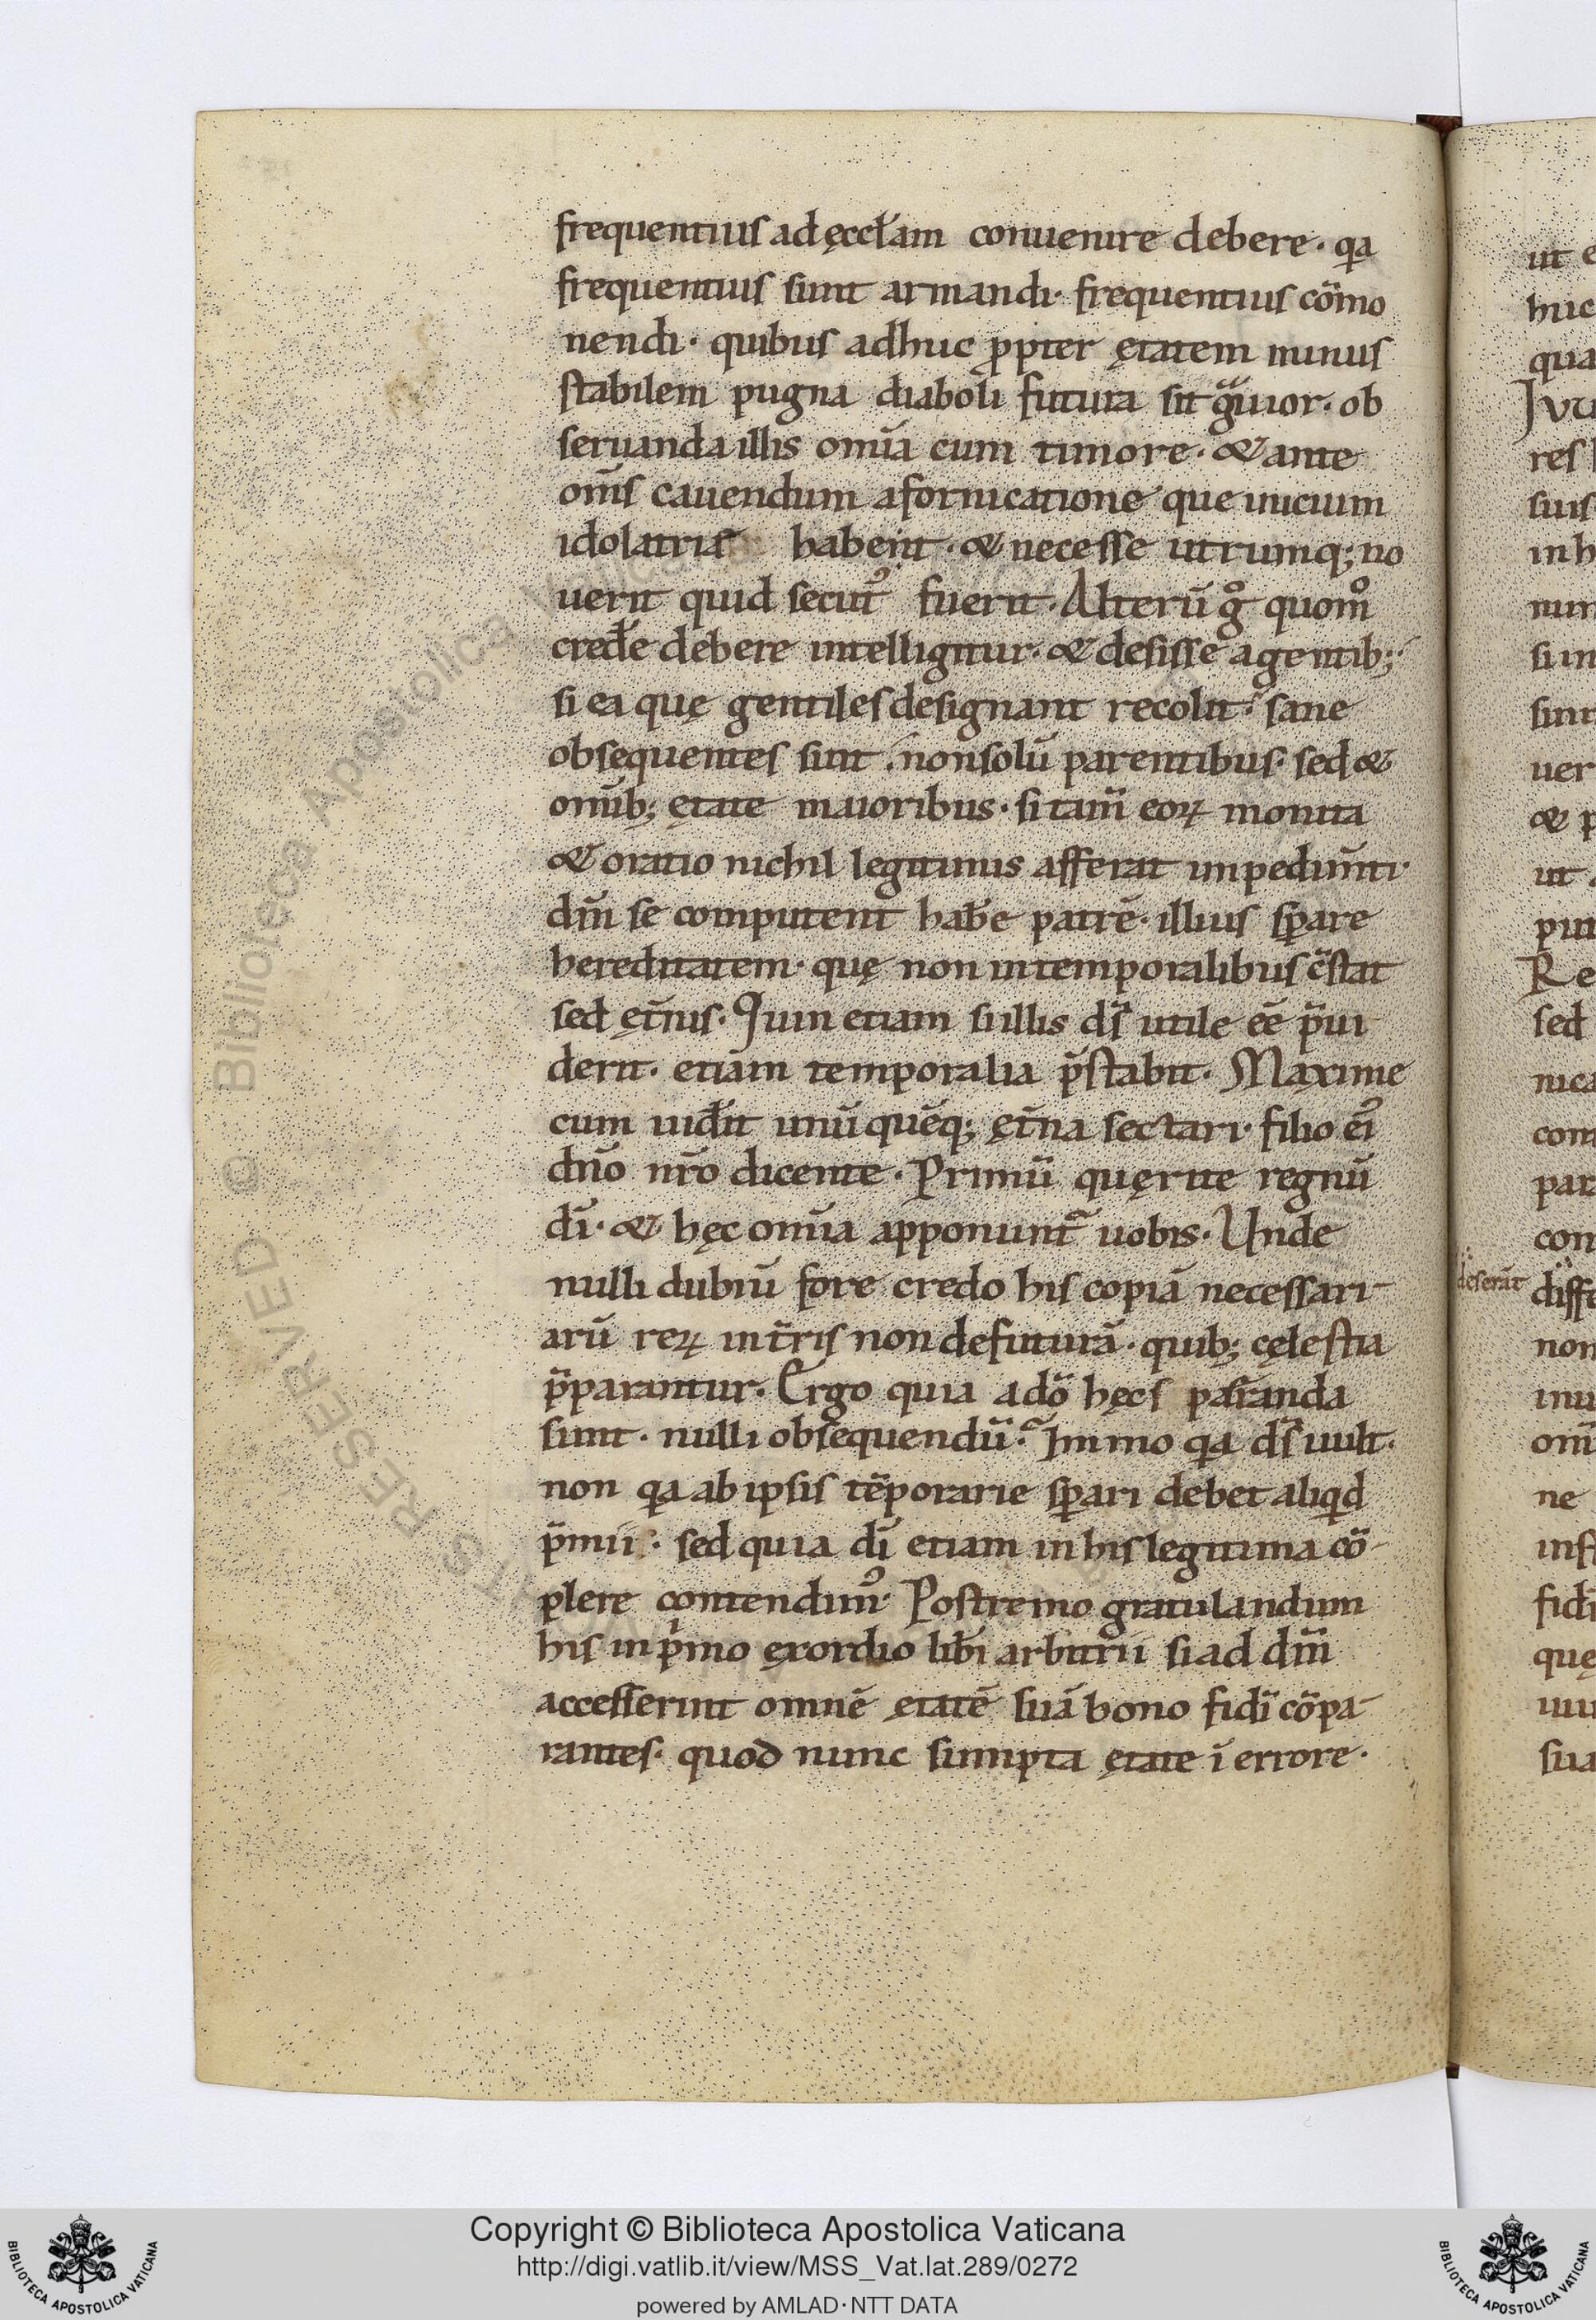 frequentius ad ęccłam conuenire debere · qa
frequentius sunt armandi · frequentius cōmo
nendi · quibus adhuc ꝓpter ętatem minus
stabilem pugna diaboli futura sit gͣuior · ob
seruanda illis om̄ia cum timore · & ante
om̄s cauendum afornicatione que inicium
idolatrię habent · & necesse utrumq; no
uerit quid secut᾽ fuerit · Alterū gͦ quomͦ
cred̄e debere intelligitur · & desisse agentib;
si ea quę gentiles designant recolit · sane
obsequentes sint · non solū parentibus · sed &
omib; ętate maioribus · si tam̄ eoꝝ monita
& oratio nichil legitimis afferat impedim̄ti ·
dm̄ se computent hab̄e patrē · illius sꝑare
hereditatem · quę non intemporalibus c̄stat
sed ęt̄nis · Quin etiam si illis ds̄ utile eē p̄ui
derit · etiam temporalia p̄stabit · Maxime
cum uid̄it unū quēq; ęt̄na sectari · filio ei᾽
dn̄o nr̄o dicente · Primū quęrite regnū
dī · & hęc om̄ia apponunt᷑ uobis · Unde
nulli dubiū fore credo his copiā necessari-
arū reꝝ int̄ris non defuturā · quib; cęlestia
p̄parantur · Ergo quia adō hęc s paranda
sunt · nulli obsequendū · Immo qa ds̄ uult ·
non qa ab ipsis tēporarie sꝑari debet aliqd
p̄mii · sed quia dī etiam in his legitima cō-
plere contendim᾽ · Postremo gratulandum
his in pͥmo ęxordio lib̄i arbitrii si ad dm̄
accesserint omnē ętatē suā bono fidī cōpa-
rantes · quod nunc sumpta ętate ī errore ·
ut
huc
qua
res
suis
in h
num
si in
sint
uer
& p
ut
put
Re
sed
nica
com
par
con
deserāt
diffe
non
inu
om̄
ne
inst
fidi
quę
uiu
sua
RESERVED © Biblioteca Apostolica Vaticana
Copyright © Biblioteca Apostolica Vaticana
http://digi.vatlib.it/view/MSS_Vat.lat.289/0272
powered by AMLAD·NTT DATA
BIBLIOTECA APOSTOLICA VATICANA
BIBLIOTECA APOSTOLICA VATICANA